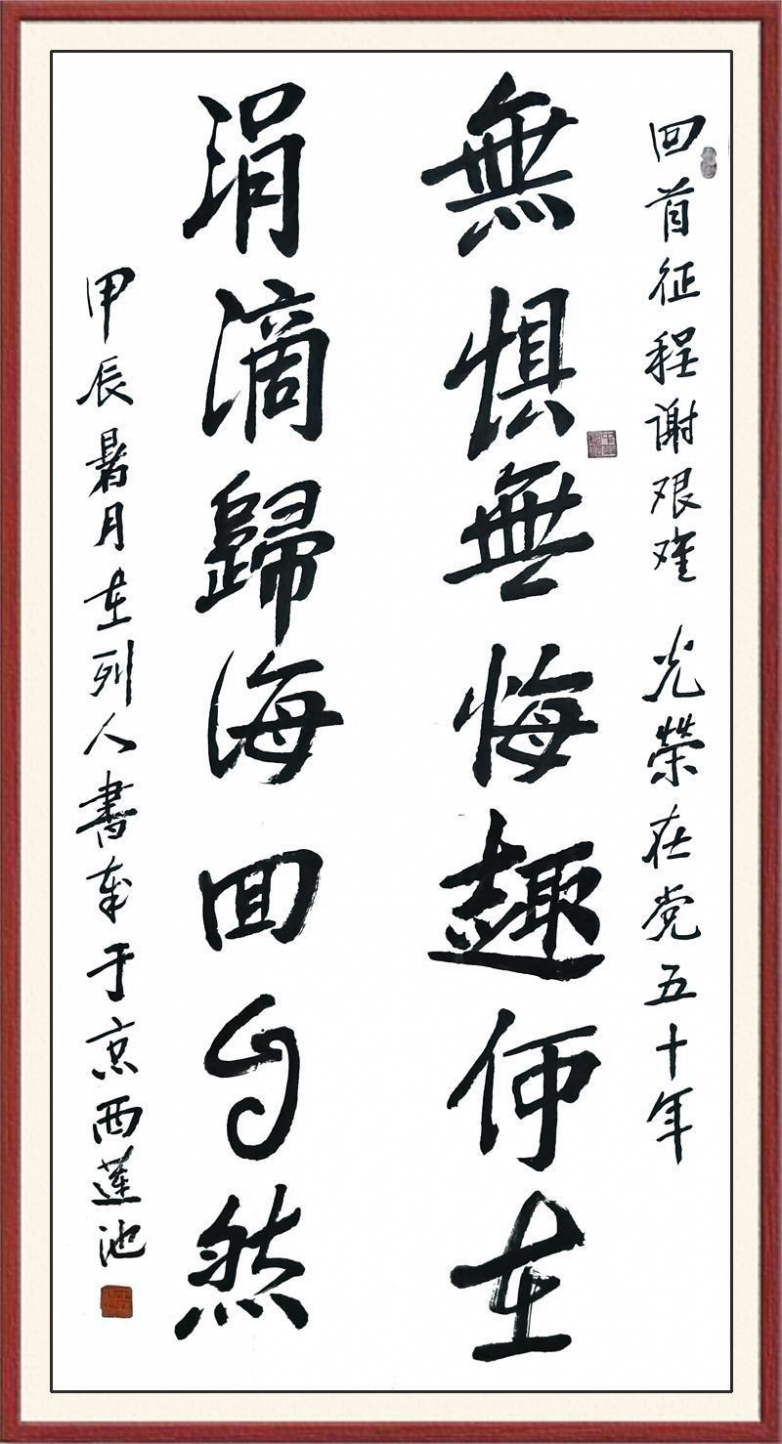 回首征程谢艰难 光榮在党五十年
無惧無悔趣在
涓滴歸海回自然
甲辰暑月在列人書于京西蓮池